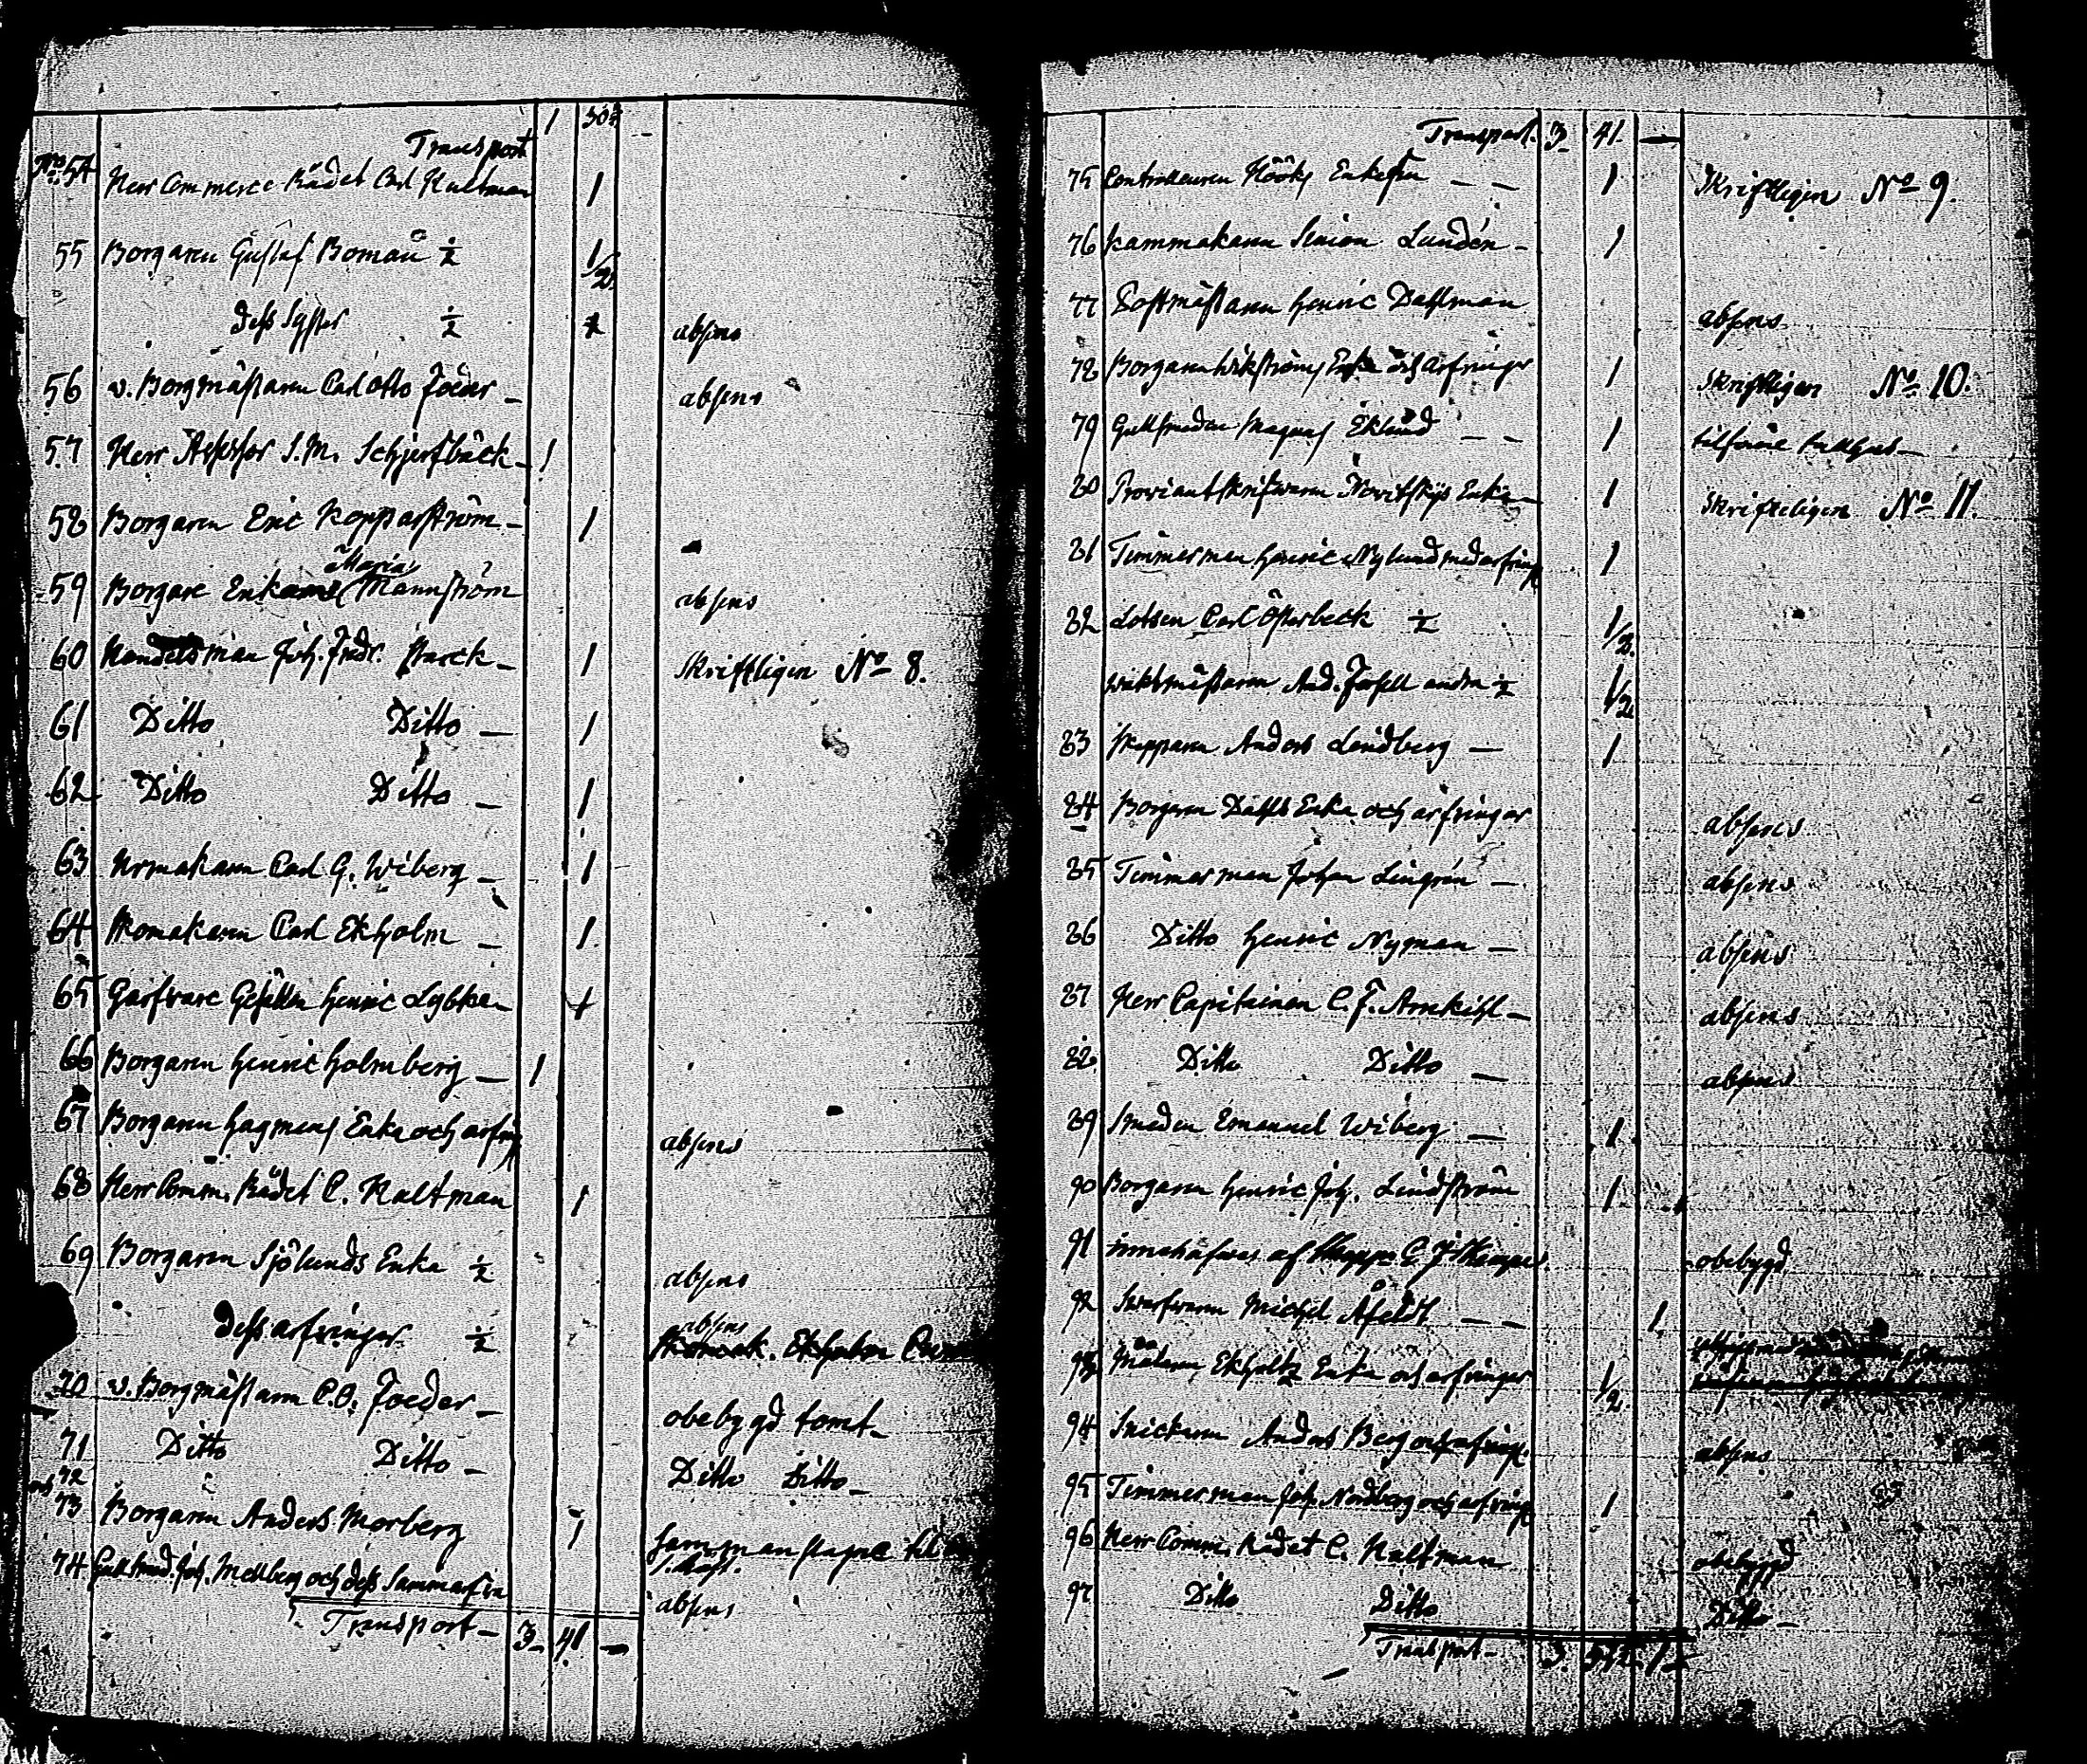 Transport 1 30½ —
No 54 Herr Commerce Rådet Carl Kaltman 1
55 Borgaren Gustaf Boman ½ 1/2
dess Syster ½ absens
56 v. Borgmästaren Carl Otto Foeder — absens
57 Herr Assessor S. M. Schjerfbäck — 1
58 Borgaren Eric Kopparström — 1
Maria
59 Borgare Enkan Mannström absens
60 Handelsman Joh. Fredr. Starck — 1 Skriftligen No 8.
61 Ditto Ditto — 1
62 Ditto Ditto — 1
63 Urmakaren Carl G. Wiberg — 1
64 Skomakaren Carl Ekholm — 1
65 Garfvare Gesällen Henric 1
66 Borgaren Henric Holmberg — 1
67 Borgaren Hagmans Enka och arfving absens
68 Herr Comm. Rådet C. Kaltman 1
69 Borgaren Sjölunds Enka ½ absens
dess arfvingar ½ absens
Skomak. Ekholm
70 v. Borgmästaren C. O. Foeder — obebygd tomt —
71 Ditto Ditto — Ditto Ditto —
och 72
73 Borgaren Anders Morberg 1
74 Gullsmed. Joh. Mellberg och dess absens
Transport — 3 41 —
Transport 3 41. —
75 Controlleuren Hööks Enkefru — — 1 Skriftligen No 9.
76 Kammakaren Simon Lundén — 1
77 Postmästaren Henric Dahlman absens
78 Borgaren Wikströms Enka och arfvingar 1 Skriftligen No 10.
79 Gullsmeden Magnus Eklund — — 1
80 Proviantskrifvaren Novitskys Enka — 1 Skrifteligen No 11.
81 Timmerman Henric Nylund med arfving 1
82 Lotsen Carl Österbeck ½ 1/2
Waktmästaren And. Forsell andra ½ 1/2
83 Skepparen Anders Lindberg — 1
84 Borgaren Dahls Enka och arfvingar absens
85 Timmerman Johan Lingrén — absens
86 Ditto Henric Nyman — absens
87 Herr Capitainen C. F. Arnkihl — absens
88. Ditto Ditto — absens
89 Smeden Emanuel Wiberg — 1
90 Borgaren Henric Joh. Lindström 1
91 innehafvas af Skepp. C. obebygd
92 Swarfvaren Michel Åfeldt — — 1.
93 Målaren Ekholtz Enka och arfvingar 1/2
94 Snickaren Anders Berg och arfving. absens
95 Timmerman Joh. Nordberg och arfving 1
96 Herr Comm. Rådet C. Kaltman obebyggd
97 Ditto Ditto Ditto —
Transport — 3